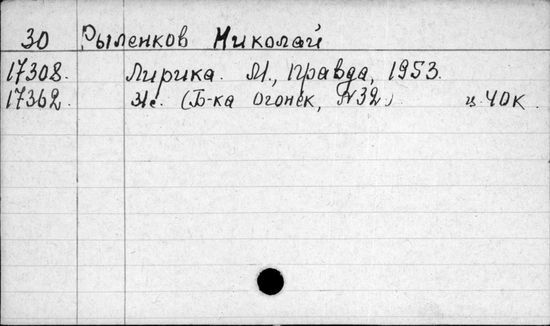 30 Рыленков Николай
17308. Лирика. М., Правда, 1953.
17362. (Б-ка Огонек, №32) ц. 40 к.